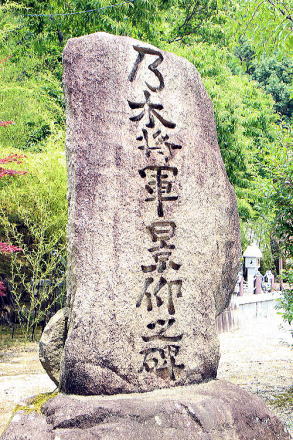 乃木将軍景仰之碑